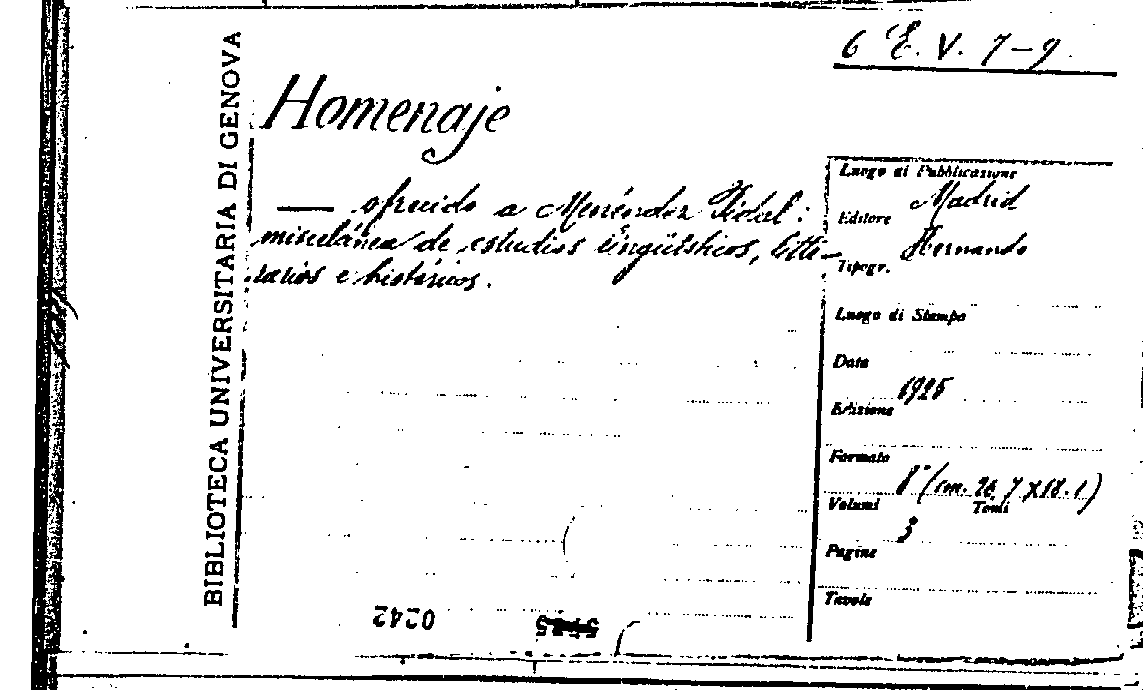 6 E. V. 7-9.
BIBLIOTECA UNIVERSITARIA DI GENOVA
Homenaje
— ofrecido a Menéndez Pidal:
miscelánea de estudios lingüísticos, litte-
rarios e históricos.
Luogo di Pubblicazione
Madrid
Editore
Hernando
Tipogr.
Luogo di Stampa
Data
1925
Edizione
Formato
8° (cm. 26,7 x 18.1)
Volumi Tomi
3
Pagine
Tavole
0242